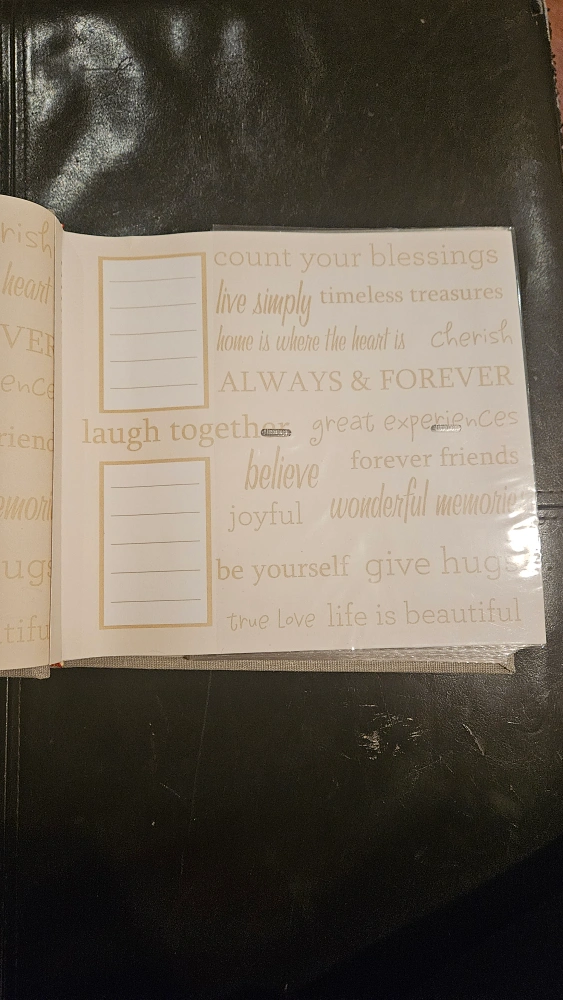 rish
heart
VER
ence
riend
emori
ugs
tifu
count your blessings
live simply timeless treasures
home is where the heart is cherish
ALWAYS & FOREVER
laugh together great experiences
believe forever friends
joyful wonderful memories
be yourself give hugs
true Love life is beautiful